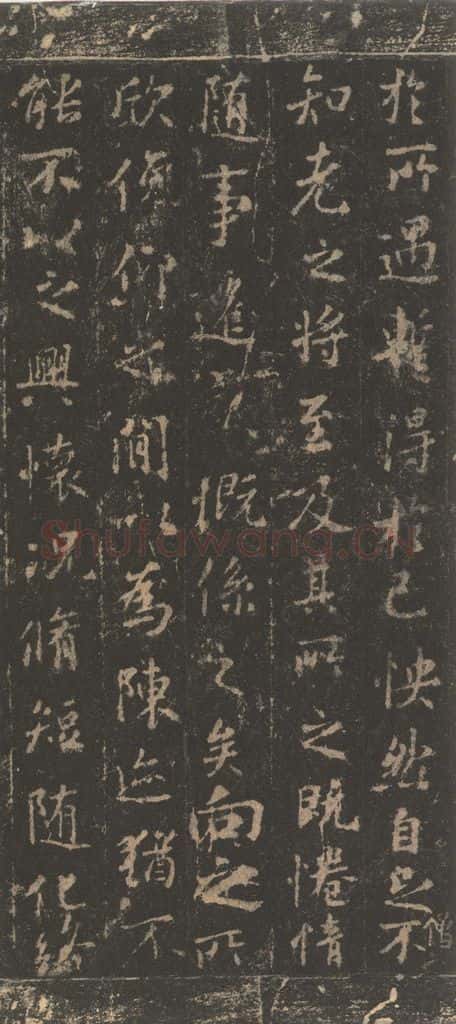 於所遇暫得於己怏然自足不
僧
知老之將至及其所之既惓情
隨事遷感慨係之矣向之所
欣俛仰之間以為陳迹猶不
能不以之興懷況脩短隨化終
Shufawang.cn